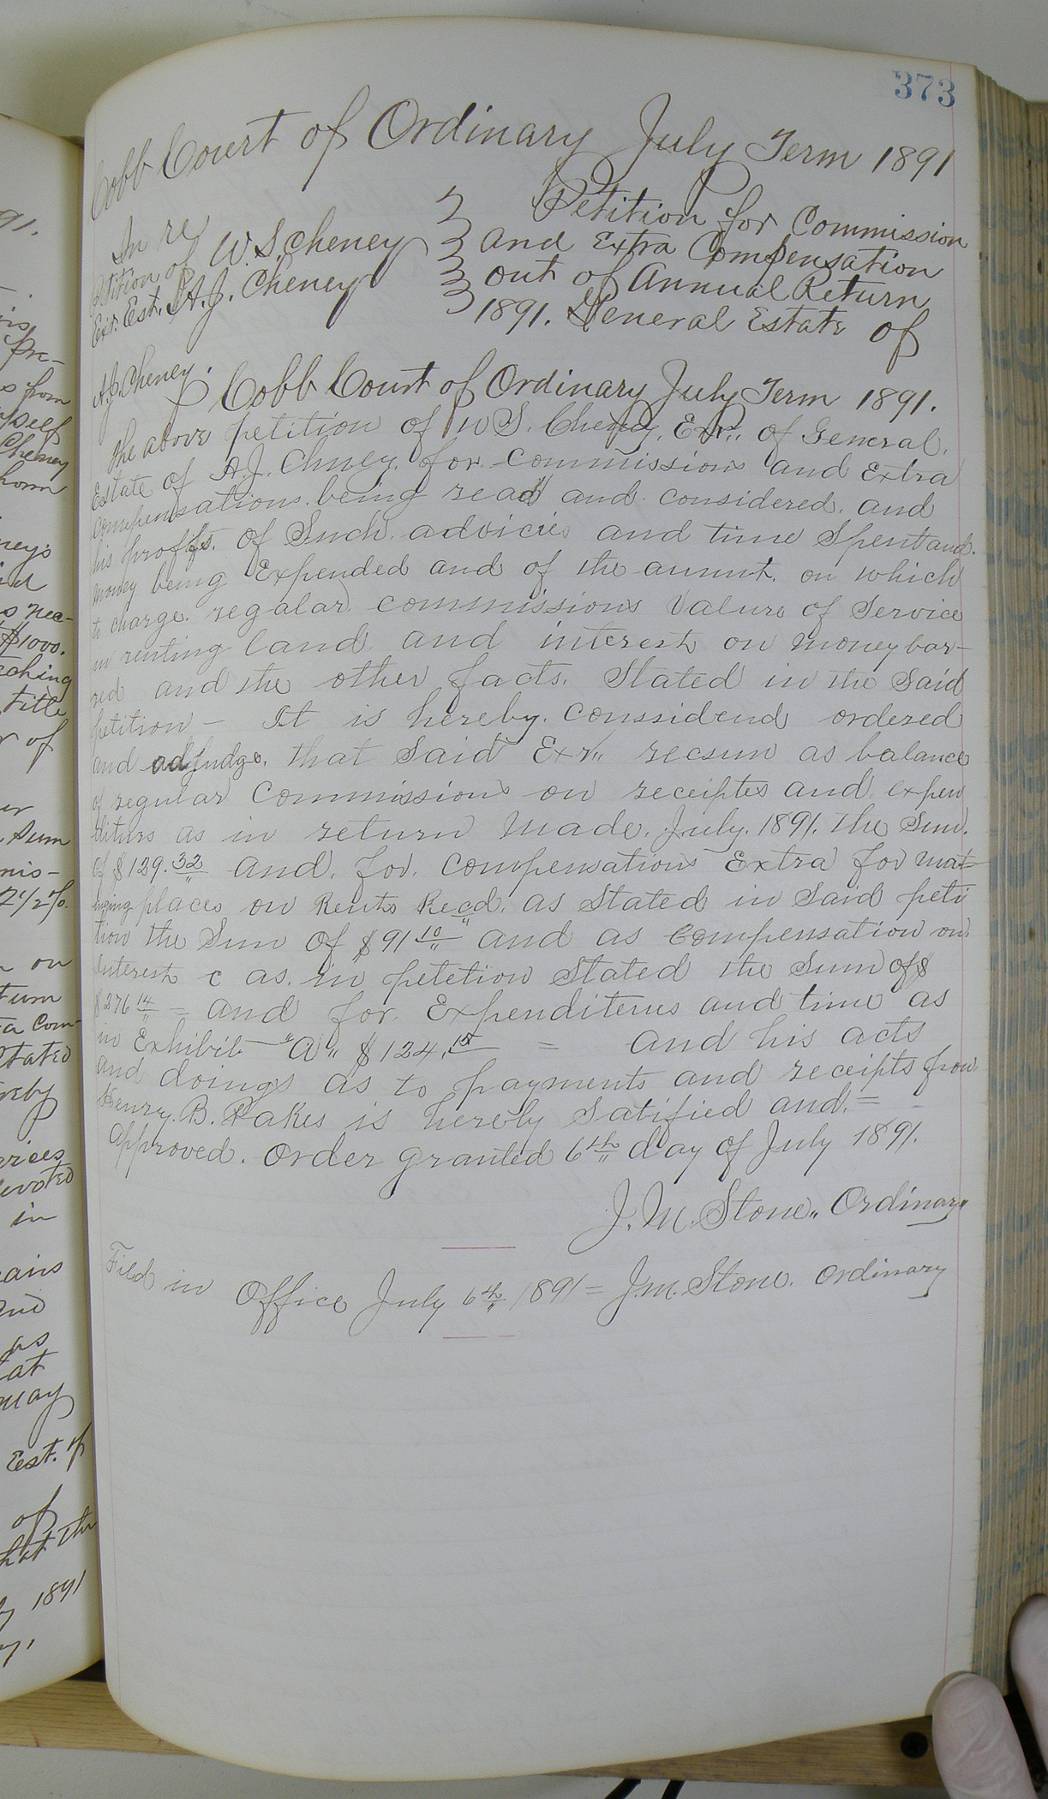 373
Cobb Court of Ordinary July Term 1891
In re
Petition of W. S. Cheney
Exr. Est. A. J. Cheney
Petition for Commission
and Extra Compensation
out of Annual Return
1891. General Estate of
A J Cheney.
Cobb Court of Ordinary July Term 1891.
The above petition of W S. Cheney, Exr. of General
Estate of A. J. Chney. for commissions and Extra
compensations being read and considered, and
his proffs. of Such advicies and time Spent and
money being Expended and of the amnt. on which
to charge regalar commissions Value of Service
in renting land and interest on money bor-
red and the other facts. Stated in the Said
petition — It is hereby. conssidend ordered
and adjudge. that Said Exr. recsun as balance
of regular Commissions on receiptes and expen
diturs as in return Made. July. 1891. the Sum.
of $129.32 and. for. Compensation Extra for
places on Rents Recd. as Stated in Said peti
tion the Sum of $91 10 and as Compensation on
Interest c as. in petetion Stated the Sum of $
$276 14 = and for Expenditeurs and time as
in Exhibit "A" $124.15 = and his acts
and doings as to payments and receipts from
Henry. B. Pakes is hereby Satified and. =
Approved. Order granted 6th day of July 1891.
J. M. Stone. Ordinary
Filed in Office July 6th 1891 = J. M. Stone. Ordinary
91.
Pre-
s from
self
Cheney
whom
ney's
s nec-
$1000.
title
r of
Sum
mis-
2 1/2 %.
on
turn
ra Com-
Stated
reby
vices
devoted
in
as
at
may
Est. of
of
that the
y 1891